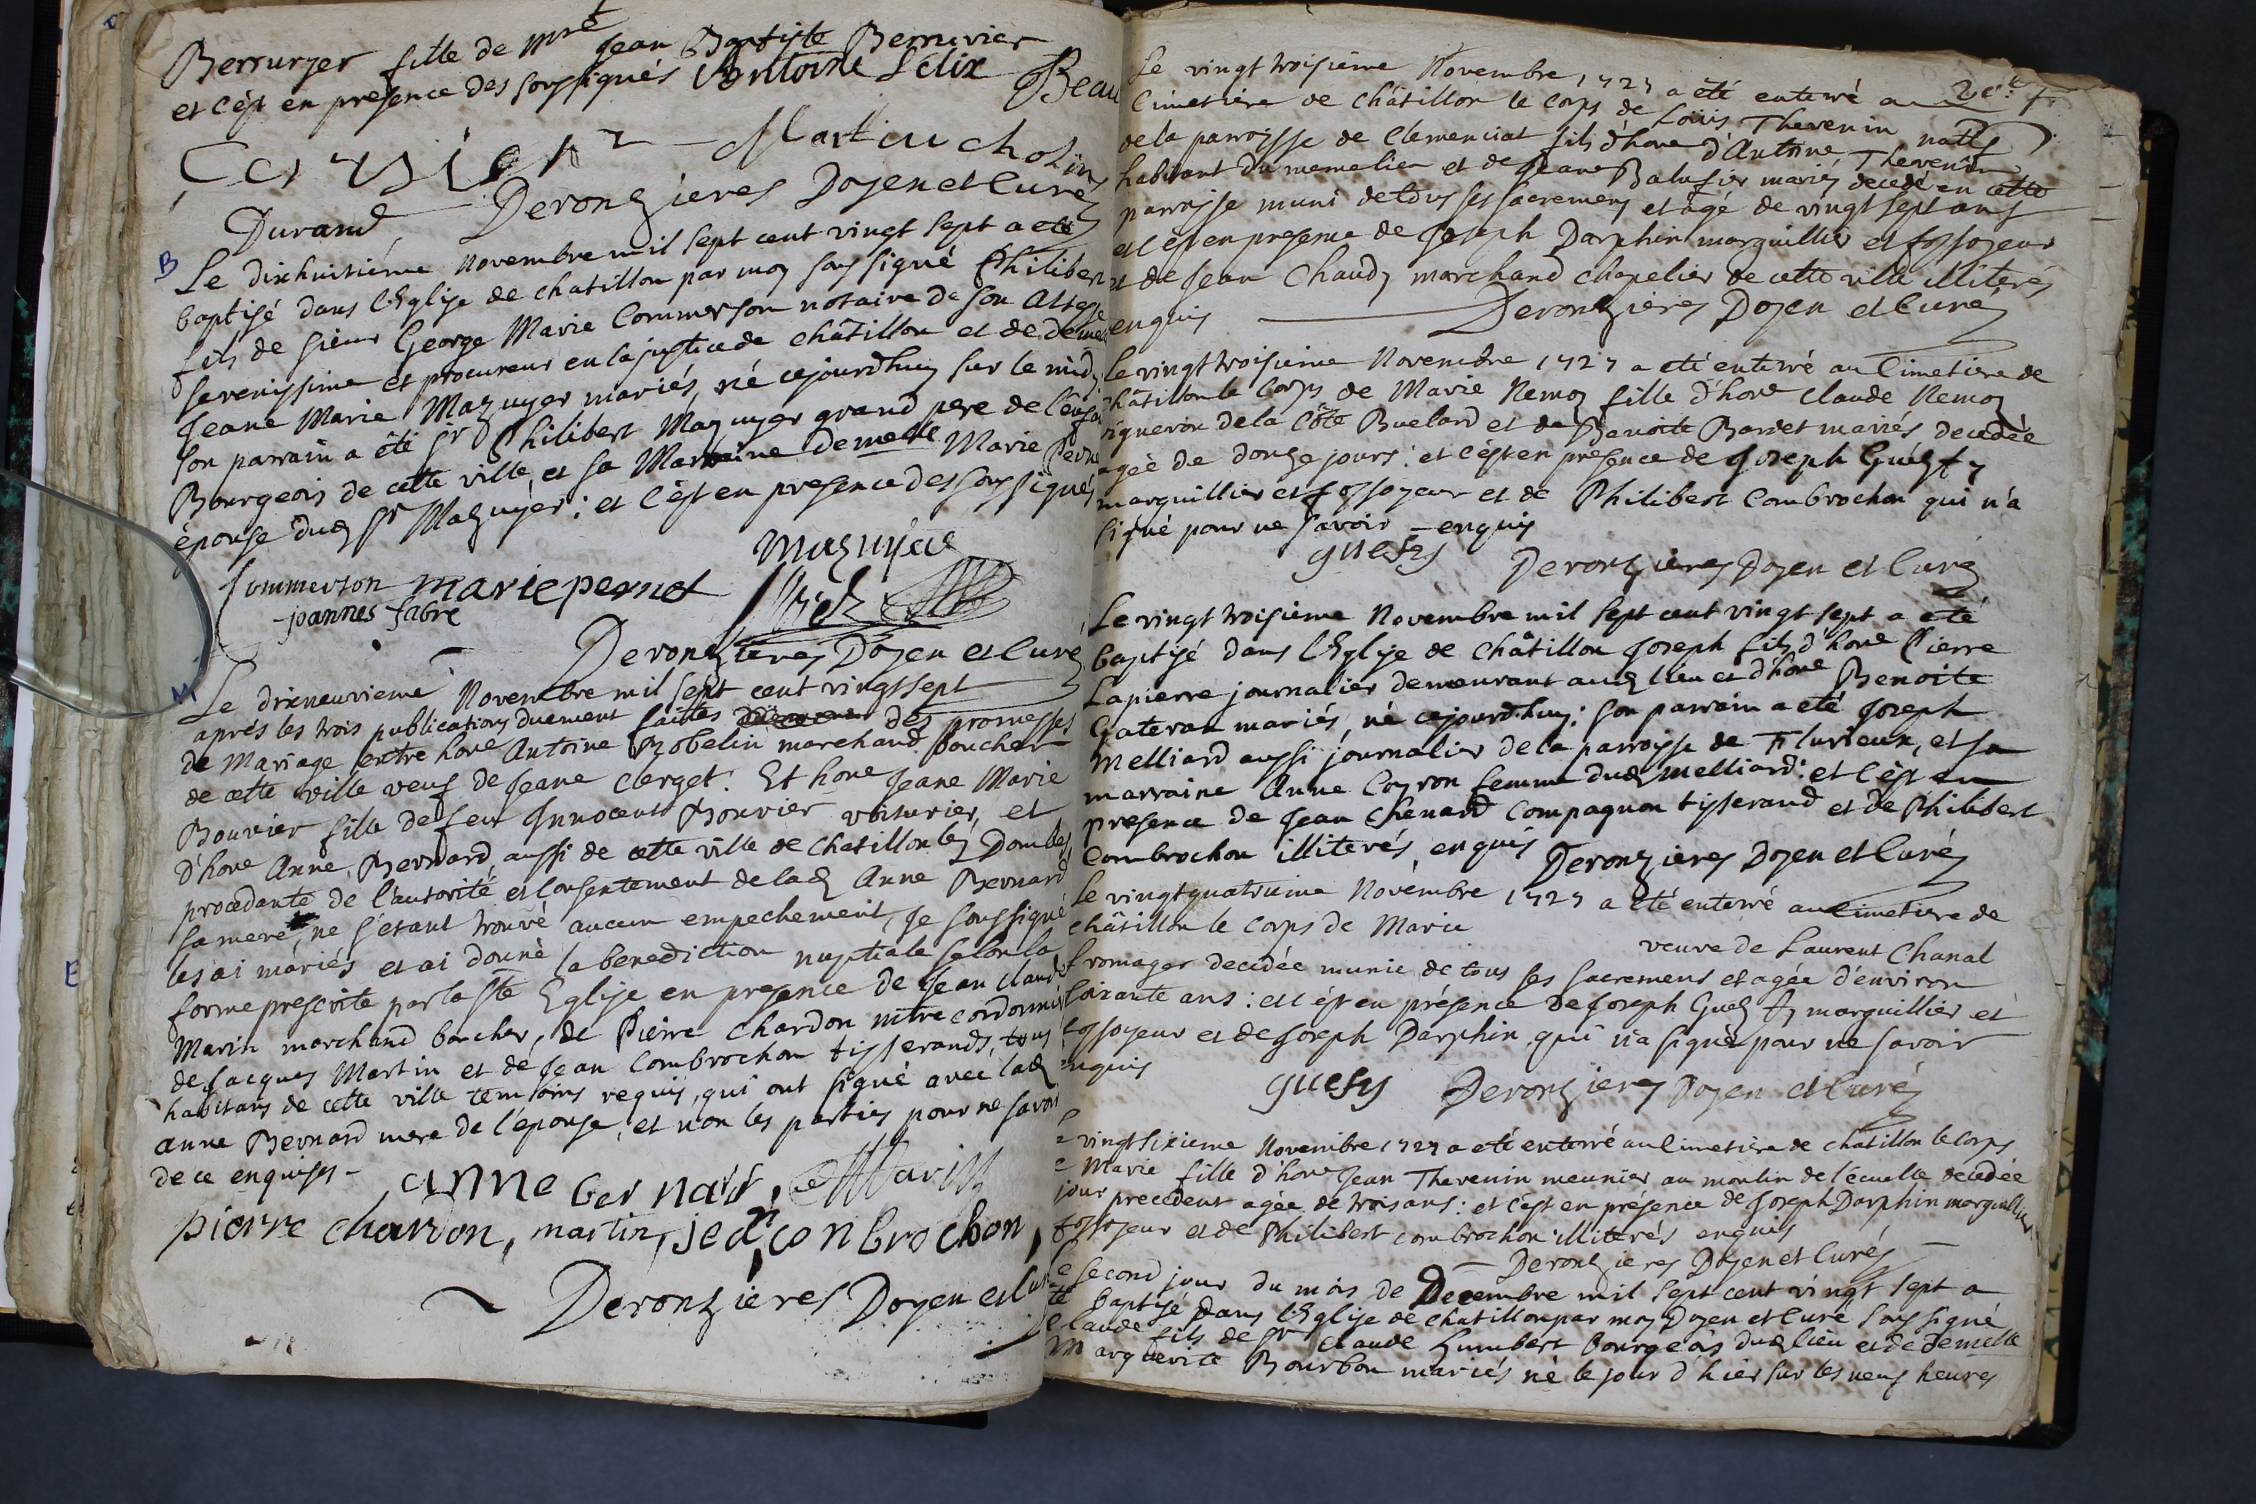 Berruyer fille de Mre Jean Baptiste Berruvier
et c'est en presence des soussignés Antoine Felix Beau
Martin
Durand Deronzieres Doyen et Curé
B
Le dixhuitiéme Novembre mil sept cent vingt sept a eté
baptisé dans l'Eglise de chatillon par moy soussigné Philibert
fils de sieur George Marie Commerson notaire de son Altesse
serenissime et procureur en la justice de châtillon et de demelle
Jeane Marie Mazuyer mariés, né cejourdhuy sur le midy
son parrain a été Sr Philibert Mazuyer grand pere de l'enfant
Bourgeois de cette ville, et sa Marraine demelle Marie Pernet
éponse dud Sr Mazuyer: et c'est en presence des soussignés
Mazuyer
Commerson marie pernet
joannes fabre
Deronzieres Doyen et Curé
M
Le dixneuvieme Novembre mil sept cent vingt sept
aprés les trois publications duement faittes des promesses
de Mariage entre hone Antoine Robelin marchand boucher
de cette ville veuf de Jeane Clerget: Et hone Jeane Marie
Bouvier fille de feu Innocent Bouvier voiturier, et
d'hone Anne Bernard, aussi de cette ville de chatillon les Dombes
procedante de l'autorité et consentement de lad Anne Bernard
sa mere, ne s'étant trouvé aucun empechement, Je soussigné
les ai mariés et ai donné la benediction nuptiale selon la
forme prescrite par la Ste Eglise en presence de Jean Claude
Marin marchand boucher, de Pierre Chardon mtre cordonnier
de Jacques Martin et de Jean Combrochon tisserands, tous
habitans de cette ville temoins requis, qui ont signé avec lad
anne Bernard mere de l'éponse, et non les parties pour ne savoir
de ce enquises -
anne bernard, Marin
pierre chardon, martin, jean conbrochon,
Deronzieres Doyen et Curé
Le vingt troisieme Novembre 1727 a été enterré au
Cimetiere de châtillon le Corps de Louis Thevenin natif
de la parroisse de Clemenciat fils d'hone d'Antoine Thevenin
habitant du meme lieu et de Jeane Balufier mariés decedé en cette
parroisse muni de tous ses sacremens et agé de vingt sept ans
et c'est en presence de Joseph Darphin marguillier et fossoyeur
et de Jean Chaudy marchand chapelier de cette ville illiterés
enquis Deronzieres Doyen et Curé
Le vingt troisieme Novembre 1727 a eté enterré au Cimetiere de
châtillon le Corps de Marie Nemoz fille d'hone Claude Nemoz
vigneron de la Côte Buelard et de Benoite Barret mariés decedée
agée de douze jours: et c'est en presence de Joseph
marguillier et fossoyeur et de Philibert Combrochon qui n'a
signé pour ne savoir - enquis
Deronzieres Doyen et Curé
Le vingt troisieme Novembre mil sept cent vingt sept a eté
baptisé dans l'Eglise de châtillon Joseph fils d'hone Pierre
Lapierre journalier demeurant aud lieu et d'hone Benoite
Gateran mariés, né cejourd'huy: son parrain a eté Joseph
Melliard aussi journalier de la parroisse de Flurieux, et sa
marraine Anne Coyron femme dud Melliard: et c'est en
presence de Jean Chenard Compagnon tisserand et de Philibert
Combrochon illiterés, enquis Deronzieres Doyen et Curé
Le vingtquatrieme Novembre 1727 a eté enterré au Cimetiere de
châtillon le Corps de Marie
veuve de Laurent Chanal
fromager decedée munie de tous ses sacremens et agée d'environ
soixante ans: et c'est en présence de Joseph marguillier et
fossoyeur et de Joseph Darphin, qui n'a signé pour ne savoir
enquis Deronzieres Doyen et Curé
Le vingt sixieme Novembre 1727 a eté enterré au Cimetiere de châtillon le Corps
de Marie fille d'hone Jean Thevenin meunier au moulin de l'écuelle decedée
jour precedent agée de trois ans: et c'est en présence de Joseph Darphin marguillier
fossoyeur et de Philibert Combrochon illiterés enquis
Deronzieres Doyen et Curé
Le second jour du mois de Decembre mil sept cent vingt sept a
été baptisé dans l'Eglise de châtillon par moy Doyen et Curé soussigné
Claude fils de Sr Claude Humbert Bourgeois dud lieu et de demelle
Marguerite Bourbon mariés né le jour d'hier sur les neuf heures